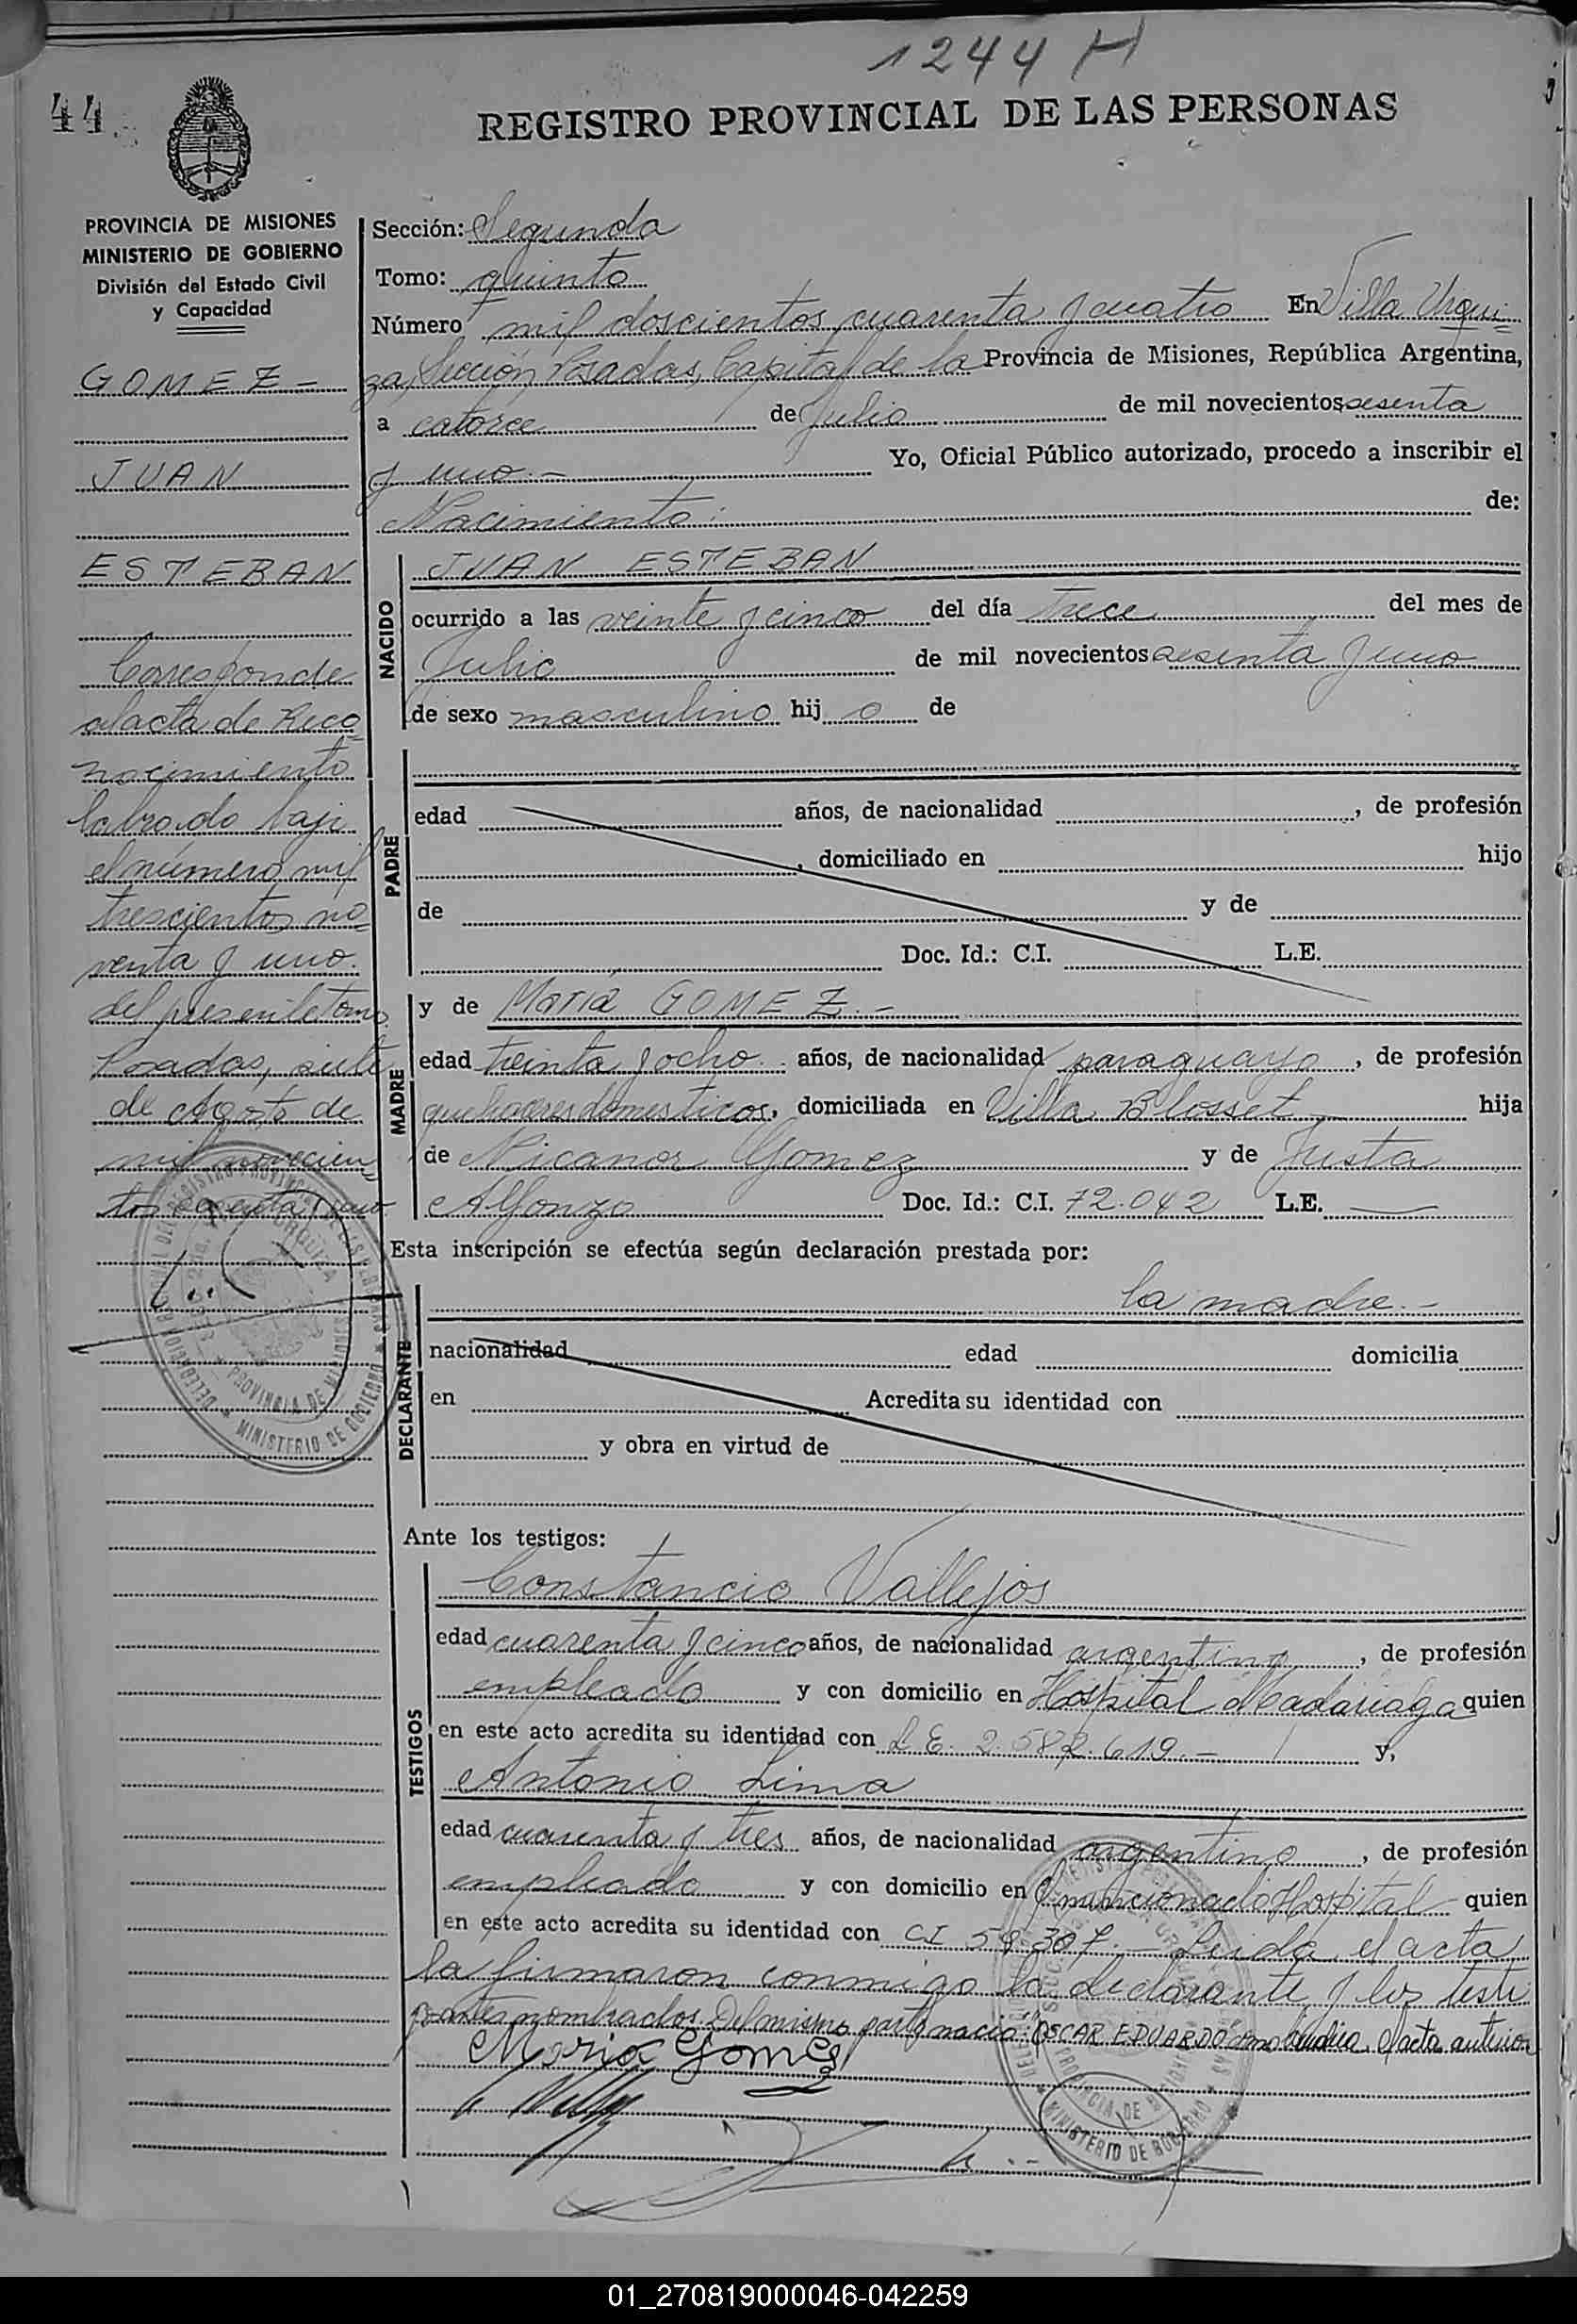 1244 H
44
REGISTRO PROVINCIAL DE LAS PERSONAS
PROVINCIA DE MISIONES
MINISTERIO DE GOBIERNO
División del Estado Civil
y Capacidad
GOMEZ -
JUAN
ESTEBAN
Corresponde
al acta de Reco
nocimiento
labrado bajo
el número mil
trescientos no
venta y uno.
del presente tomo
Posadas, siete
de Agosto de
mil novecien
tos sesenta y uno
Sección: Segunda
Tomo: quinto
Número mil doscientos cuarenta y cuatro En Villa Urqui-
za, Sección Posadas, Capital de la Provincia de Misiones, República Argentina,
a catorce de Julio de mil novecientos sesenta
y uno.- Yo, Oficial Público autorizado, procedo a inscribir el
Nacimiento: de:
NACIDO
JUAN ESTEBAN
ocurrido a las veinte y cinco del día trece del mes de
Julio de mil novecientos sesenta y uno
de sexo masculino hij o de
PADRE
edad años, de nacionalidad , de profesión
, domiciliado en hijo
de y de
Doc. Id.: C.I. L.E.
MADRE
y de María GOMEZ.-
edad treinta y ocho años, de nacionalidad paraguaya, de profesión
quehaceres domesticos, domiciliada en Villa Blosset hija
de Nicanor Gomez y de Justa
Alfonzo Doc. Id.: C.I. 72.042 L.E.
Esta inscripción se efectúa según declaración prestada por:
DECLARANTE
la madre.-
nacionalidad edad domicilia
en Acredita su identidad con
y obra en virtud de
Ante los testigos:
TESTIGOS
Constancio Vallejos
edad cuarenta y cinco años, de nacionalidad argentino, de profesión
empleado y con domicilio en Hospital Madariaga quien
en este acto acredita su identidad con L E. 2.582.619.- y,
Antonio Lima
edad cuarenta y tres años, de nacionalidad argentino, de profesión
empleado y con domicilio en Hospital quien
en este acto acredita su identidad con CI 58.307.- Leida el acta
la firmaron conmigo la declarante y los testi
nombrados. Del mismo parto nació: OSCAR EDUARDO como el acta anterior
Maria Gomez
PROVINCIA DE MISIONES
MINISTERIO DE GOBIERNO
PROVINCIA DE
MINISTERIO DE GOBIERNO
01_270819000046-042259